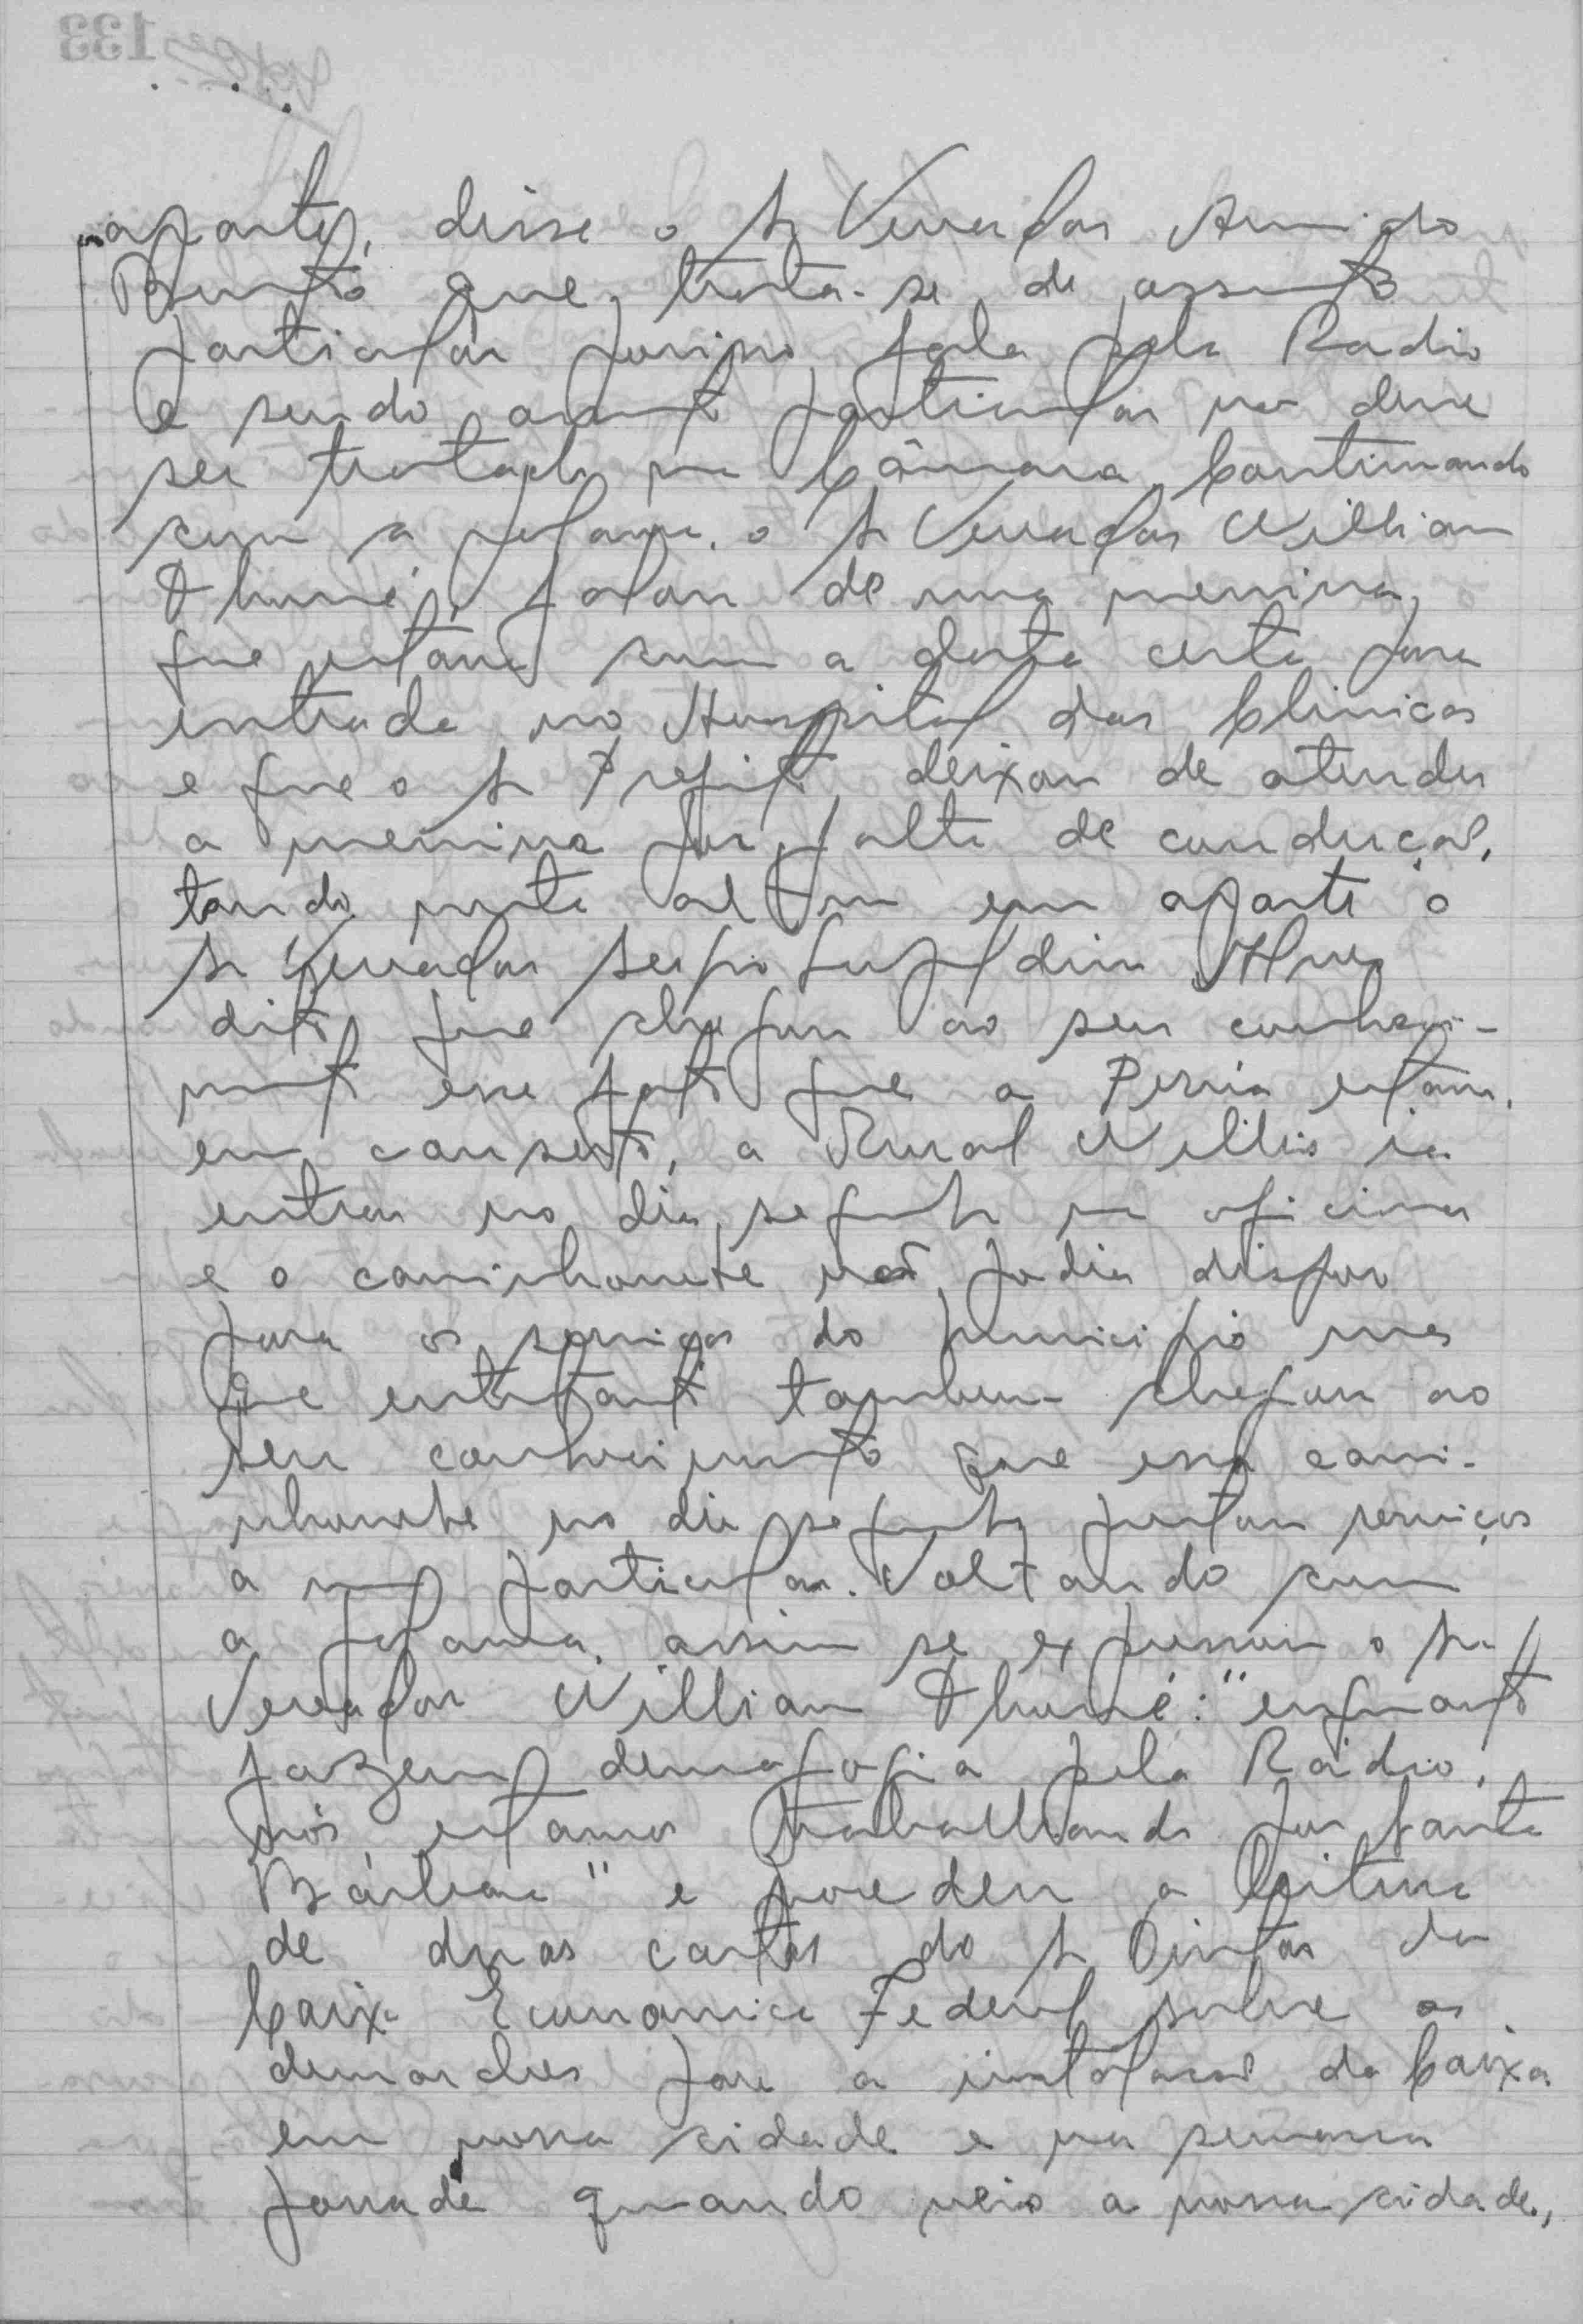 aparte, disse o Sr Vereador
que, trata-se de assunto
particular fala pela Radio
e sendo assunto particular não deve
ser tratado na Câmara. Continuando
com a palavra, o Sr Vereador Willian
Thumé, falou de uma menina,
que estava com a data certa para
entrada no Hospital das Clinicas
e que o Sr Prefeito, deixou de atender
a menina por falta de condução,
tendo nesta altura em aparte o
Sr Vereador
dito, que chegou ao seu conheci-
mento esse fato que a Perúa estava
em conserto, a Rural Willis ia
entrar no dia seguinte na oficina
e o caminhonete não podia dispor
para os serviços do municipio mas
que entretanto tambem chegou ao
seu conhecimento que essa cami-
nhonete no dia seguinte prestou serviços
a um particular. Voltando com
a palavra, assim se expressou o Sr
Vereador Willian Thumé: "enquanto
fazem demagogia pela Rádio,
nós estamos trabalhando por Santa
Bárbara" e procedeu a leitura
de duas cartas do Sr da
Caixa Economica Federal sobre as
demarches para a instalação da Caixa
em nossa cidade e na semana
passada quando veio a nossa cidade,